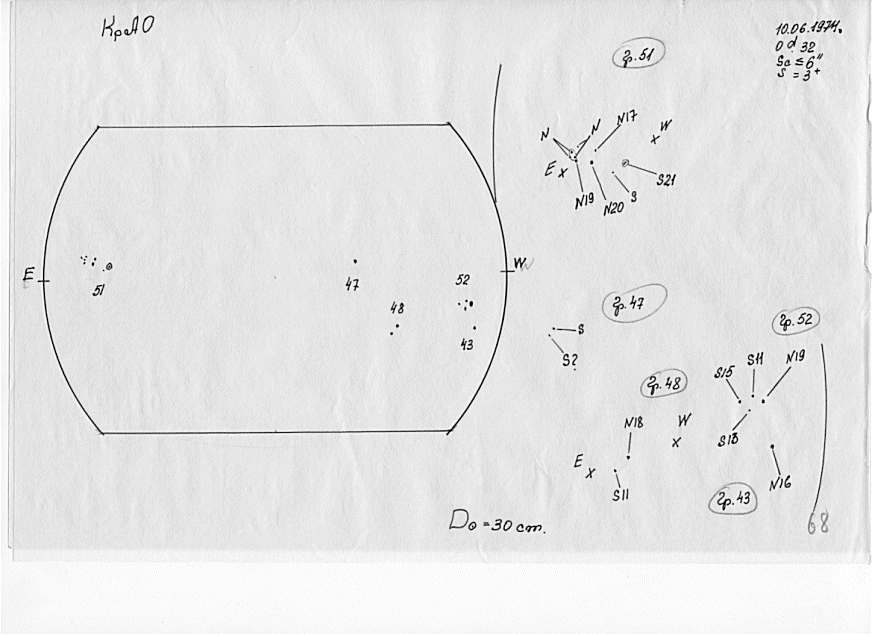 КрАО
10.06.1974.
0 d. 32
Sa ≤ 6"
S = 3+
гр. 51
N N N17
E x
x W
S21
S
N19
N20
E
W
51
47
48
52
43
гр. 47
S
S?
гр. 52
S15 S11 N19
S13
гр. 48
N18 W
x
E x
S11
N16
гр. 43
D⊙ = 30 cm.
68